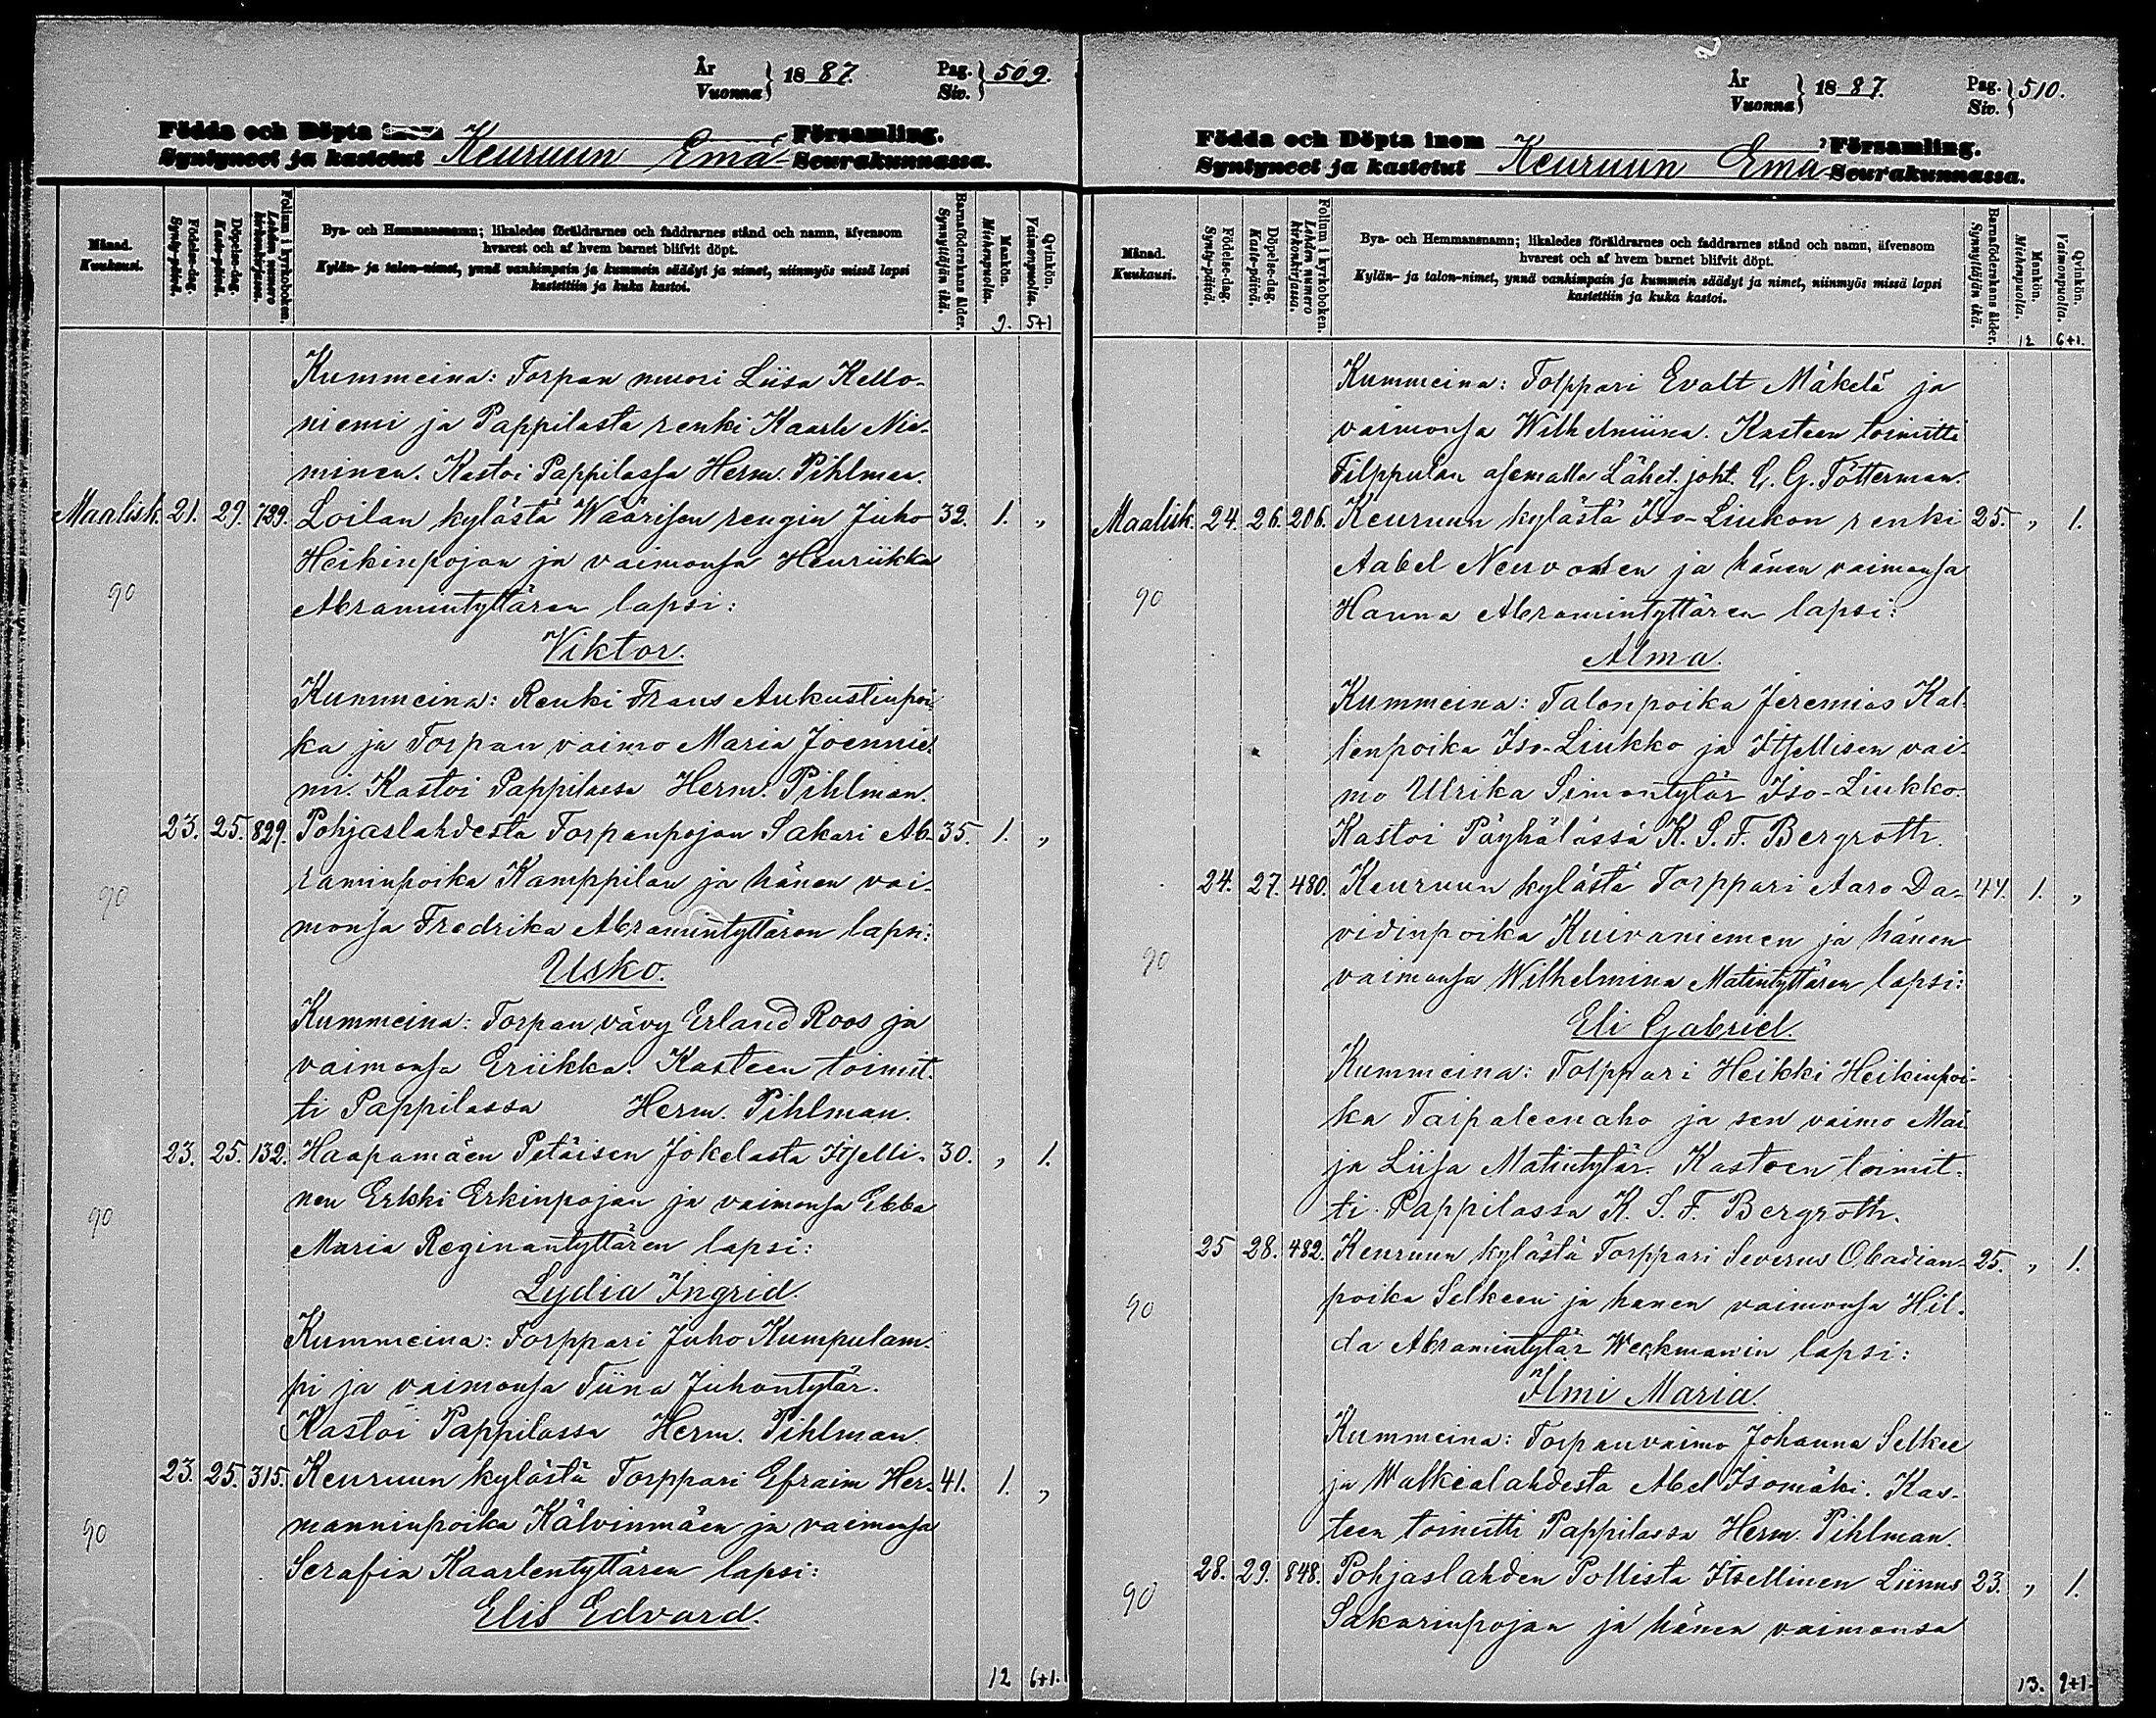 År
Vuonna } 18 87. Pag.
Siv. } 509.
Födda och Döpta inom Församling.
Syntyneet ja kastetut Keuruun Emä- Seurakunnassa.
Månad.
Kuukausi.
Födelse-dag.
Synty-päivä.
Döpelse-dag.
Kaste-päivä.
Folium i kyrkoboken.
Lehden numero kirkonkirjassa.
Bya- och Hemmansnamn; likaledes föräldrarnes och faddrarnes stånd och namn, äfvensom
hvarest och af hvem barnet blifvit döpt.
Kylän- ja talon-nimet, ynnä vanhimpain ja kummein säädyt ja nimet, niinmyös missä lapsi
kastettiin ja kuka kastoi.
Barnaföderskans ålder.
Synnyttäjän ikä.
Mankön.
Miehenpuolia.
Qvinkön.
Vaimonpuolia.
9. 5+1
Kummeina: Torpan muori Liisa Kello-
niemi ja Pappilasta renki Kaarle Nie-
minen. Kastoi Pappilassa Herm. Pihlman.
Maalisk. 21. 29. 729. Loilan kylästä Wäärisen rengin Juho 32. 1. „
Heikinpojan ja vaimonsa Henriikka
90
Abramintyttären lapsi:
Viktor.
Kummeina: Renki Frans Aukustinpoi-
ka ja Torpan vaimo Maria Joennie-
mi. Kastoi Pappilassa Herm. Pihlman.
23. 25. 829. Pohjaslahdesta Torpanpojan Sakari Ab- 35. 1. „
raminpoika Kamppilan ja hänen vai-
90
monsa Fredrika Abramintyttären lapsi:
Usko.
Kummeina: Torpan vävy Erland Roos ja
vaimonsa Eriikka. Kasteen toimit-
ti Pappilassa Herm. Pihlman.
23. 25. 132. Haapamäen Petäisen Jokelasta Itselli- 30. „ 1.
nen Erkki Erkinpojan ja vaimonsa Ebba
90
Maria Reginantyttären lapsi:
Lydia Ingrid.
Kummeina: Torppari Juho Kumpulam-
pi ja vaimonsa Tiina Juhontytär.
Kastoi Pappilassa Herm. Pihlman.
23. 25. 315. Keuruun kylästä Torppari Efraim Her- 41. 1. „
manninpoika Kälvinmäen ja vaimonsa
90
Serafia Kaarlentyttären lapsi:
Elis Edvard.
12 6+1.
År
Vuonna } 18 87. Pag.
Siv. } 510.
Födda och Döpta inom Församling.
Syntyneet ja kastetut Keuruun Emä Seurakunnassa.
Månad.
Kuukausi.
Födelse-dag.
Synty-päivä.
Döpelse-dag.
Kaste-päivä.
Folium i kyrkoboken.
Lehden numero kirkonkirjassa.
Bya- och Hemmansnamn; likaledes föräldrarnes och faddrarnes stånd och namn, äfvensom
hvarest och af hvem barnet blifvit döpt.
Kylän- ja talon-nimet, ynnä vanhimpain ja kummein säädyt ja nimet, niinmyös missä lapsi
kastettiin ja kuka kastoi.
Barnaföderskans ålder.
Synnyttäjän ikä.
Mankön.
Miehenpuolia.
Qvinkön.
Vaimonpuolia.
12 6+1.
Kummeina: Torppari Evalt Mäkelä ja
vaimonsa Wilhelmiina. Kasteen toimitti
Filppulan asemalla Lähet. joht. C. G. Tötterman.
Maalisk. 24. 26. 206. Keuruun kylästä Iso-Liukon renki 25. „ 1.
Aabel Neuvosen ja hänen vaimonsa
90
Hanna Abramintyttären lapsi:
Alma.
Kummeina: Talonpoika Jeremias Kal-
lenpoika Iso-Liukko ja Itsellisen vai-
mo Ulrika Simontytär Iso-Liukko.
Kastoi Päyhälässä K. S. F. Bergroth.
24. 27. 480. Keuruun kylästä Torppari Aaro Da- 44. 1. „
vidinpoika Kuivaniemen ja hänen
90
vaimonsa Wilhelmina Matintyttären lapsi:
Eli Gabriel.
Kummeina: Torppari Heikki Heikinpoi-
ka Taipaleenaho ja sen vaimo Mai-
ja Liisa Matintytär. Kasteen toimit-
ti Pappilassa K. S. F. Bergroth.
25 28. 482. Keuruun kylästä Torppari Severus Obadian- 25. „ 1.
poika Selkeen ja hanen vaimonsa Hil-
90
da Abramintytär Weckmanin lapsi:
Ilmi Maria.
Kummeina: Torpanvaimo Johanna Selkee
ja Walkealahdesta Abel Isomäki. Kas-
teen toimitti Pappilassa Herm. Pihlman.
28. 29. 848. Pohjaslahden Pollista Itsellinen Liinus 23. „ 1.
90
Sakarinpojan ja hänen vaimonsa
13. 9+1.